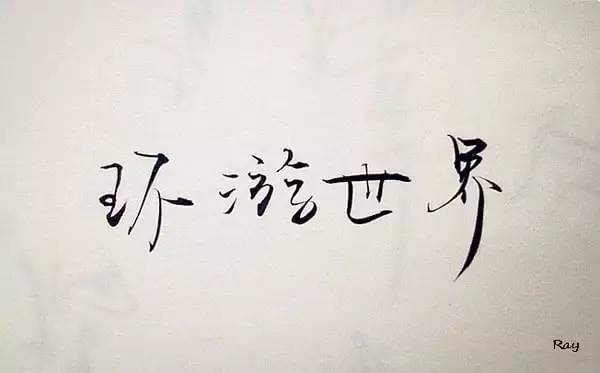 环游世界
Ray